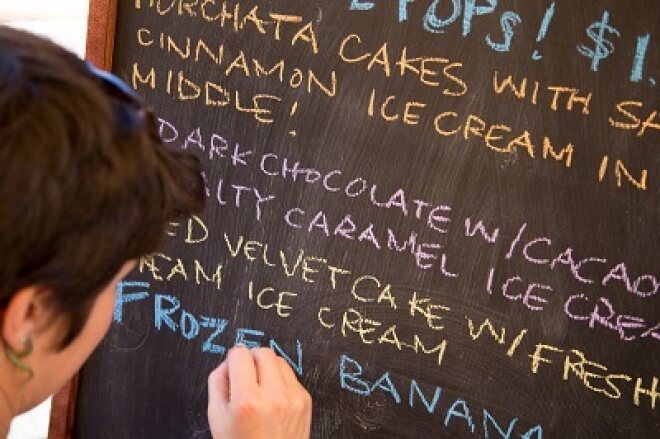 POPS! $1.
HORCHATA CAKES WITH
CINNAMON ICE CREAM IN
MIDDLE!
DARK CHOCOLATE W/ CACAO
CARAMEL ICE CREA
ED VELVET CAKE W/ FRESH
EAM ICE CREAM
FROZEN BANANA